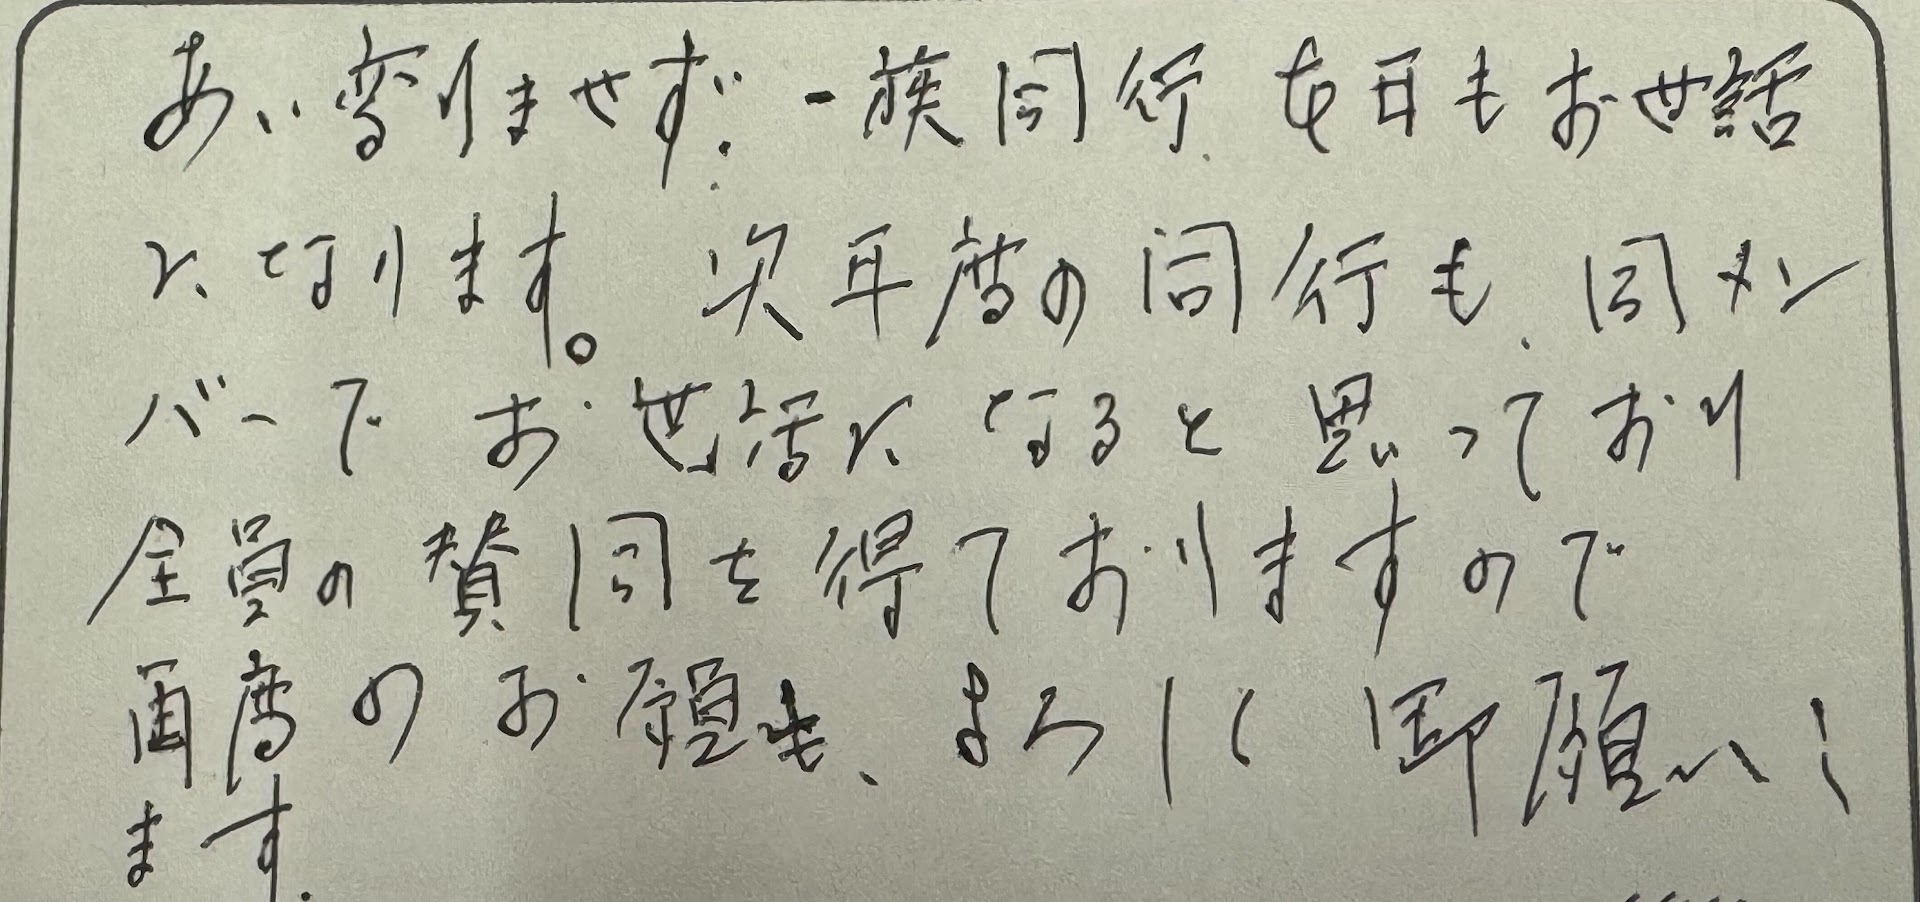 あい変りませず、一族同行、本日もお世話
になります。次年度の同行も、同メン
バーでお世話になると思っており
全員の賛同を得ておりますので
再度のお願も、よろしく御願いし
ます。